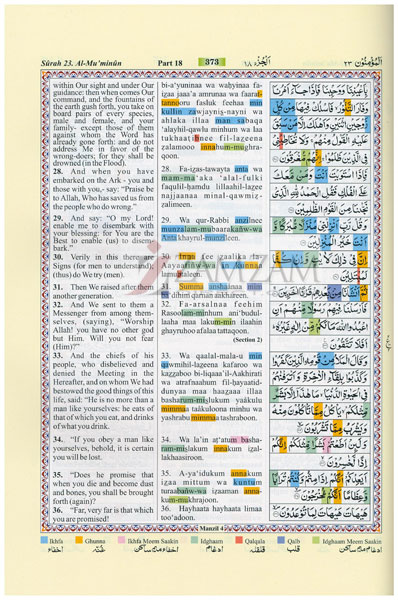 Sûrah 23. Al-Mu'minûn Part 18 373 الْجُزْء ١٨ الْمُؤْمِنُوْن ٢٣
within Our sight and under Our
guidance: then when comes Our
command, and the fountains of
the earth gush forth, you take on
board pairs of every species,
male and female, and your
family- except those of them
against whom the Word has
already gone forth: and do not
address Me in favor of the
wrong-doers; for they shall be
drowned (in the Flood).
28. And when you have
embarked on the Ark - you and
those with you,- say: "Praise be
to Allah, Who has saved us from
the people who do wrong."
29. And say: "O my Lord!
enable me to disembark with
your blessing: for You are the
Best to enable (us) to disem-
bark."
30. Verily in this there are
Signs (for men to understand);
(thus) do We try (men).
31. Then We raised after them
another generation.
32. And We sent to them a
Messenger from among them-
selves, (saying), "Worship
Allah! you have no other god
but Him. Will you not fear
(Him)?"
33. And the chiefs of his
people, who disbelieved and
denied the Meeting in the
Hereafter, and on whom We had
bestowed the good things of this
life, said: "He is no more than a
man like yourselves: he eats of
that of which you eat, and drinks
of what you drink.
34. "If you obey a man like
yourselves, behold, it is certain
you will be lost.
35. "Does he promise that
when you die and become dust
and bones, you shall be brought
forth (again)?
36. "Far, very far is that which
you are promised!
bi-a'yuninaa wa wahyinaa fa-
izaa jaaa'a amrunaa wa faarat-
tannooru fasluk feehaa min
kullin zawjaynis-nayni wa
ahlaka illaa man sabaqa
'alayhil-qawlu minhum wa laa
tukhaatibnee fil-lazeena
zalamooo innahum-mughra-
qoon.
28. Fa-izas-tawayta anta wa
mam-ma'aka 'alal-fulki
faqulil-hamdu lillaahil-lazee
najjaanaa minal-qawmiz-
zaalimeen.
29. Wa qur-Rabbi anzilnee
munzalam-mubaarakañw-wa
Anta khayrul-munzileen.
30. Inna
31. Summa anshaanaa
ba'dihim qarnan aakhareen.
32. Fa-arsalnaa feehim
Rasoolam-minhum ani'budul-
laaha maa lakum-min ilaahin
ghayruhoo afalaa tattaqoon.
(Section 2)
33. Wa qaalal-mala-u min
qawmihil-lazeena kafaroo wa
kazzaboo bi-liqaaa'il-Aakhirati
wa atrafnaahum fil-hayaatid-
dunyaa maa haazaaa illaa
basharum-mislukum yaakulu
mimmaa taakuloona minhu wa
yashrabu mimmaa tashraboon.
34. Wa la'in at'atum basha-
ram-mislakum innakum izal-
lakhaasiroon.
35. A-ya'idukum annakum
izaa mittum wa kuntum
turaabañw-wa izaaman anna-
kum-mukhrajoon.
36. Hayhaata hayhaata limaa
too'adoon.
بِاَعْيُنِنَا وَوَحْيِنَا فَاِذَا جَآءَ اَمْرُنَا
وَفَارَ التَّنُّوْرُ فَاسْلُكْ فِيْهَا مِنْ كُلٍّ
زَوْجَيْنِ اثْنَيْنِ وَاَهْلَكَ اِلَّا مَنْ سَبَقَ
عَلَيْهِ الْقَوْلُ مِنْهُمْ وَلَا تُخَاطِبْنِيْ
فِي الَّذِيْنَ ظَلَمُوْا اِنَّهُمْ مُّغْرَقُوْنَ
فَاِذَا اسْتَوَيْتَ اَنْتَ وَمَنْ مَّعَكَ
عَلَى الْفُلْكِ فَقُلِ الْحَمْدُ لِلّٰهِ الَّذِيْ
نَجّٰىنَا مِنَ الْقَوْمِ الظّٰلِمِيْنَ
وَقُلْ رَّبِّ اَنْزِلْنِيْ مُنْزَلًا مُّبٰرَكًا وَّ
اَنْتَ خَيْرُ الْمُنْزِلِيْنَ
اِنَّ فِيْ ذٰلِكَ لَاٰيٰتٍ
ثُمَّ اَنْشَاْنَا مِنْۢ بَعْدِهِمْ قَرْنًا اٰخَرِيْنَ
فَاَرْسَلْنَا فِيْهِمْ رَسُوْلًا مِّنْهُمْ اَنِ
اعْبُدُوا اللّٰهَ مَا لَكُمْ مِّنْ اِلٰهٍ غَيْرُهٗ
اَفَلَا تَتَّقُوْنَ
وَقَالَ الْمَلَاُ مِنْ قَوْمِهِ الَّذِيْنَ كَفَرُوْا
وَكَذَّبُوْا بِلِقَآءِ الْاٰخِرَةِ وَاَتْرَفْنٰهُمْ
فِي الْحَيٰوةِ الدُّنْيَا مَا هٰذَآ اِلَّا بَشَرٌ
مِّثْلُكُمْ يَاْكُلُ مِمَّا تَاْكُلُوْنَ مِنْهُ
وَيَشْرَبُ مِمَّا تَشْرَبُوْنَ
وَلَئِنْ اَطَعْتُمْ بَشَرًا مِّثْلَكُمْ اِنَّكُمْ
اِذًا لَّخٰسِرُوْنَ
اَيَعِدُكُمْ اَنَّكُمْ اِذَا مِتُّمْ وَكُنْتُمْ تُرَابًا
وَّعِظَامًا اَنَّكُمْ مُّخْرَجُوْنَ
هَيْهَاتَ هَيْهَاتَ لِمَا تُوْعَدُوْنَ
ZAMZAM
Manzil 4
Ikhfa Ghunna Ikhfa Meem Saakin Idghaam Qalqala Qalb Idghaam Meem Saakin
اخفاء غنّه اخفاء میم ساکن ادغام قلقله قلب ادغام میم ساکن